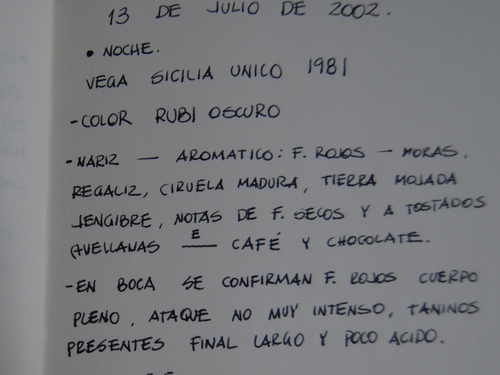 13 DE JULIO DE 2002.
• NOCHE.
VEGA SICILIA UNICO 1981
-COLOR RUBI OSCURO
-NARIZ — AROMATICO: F. ROJOS — MORAS,
REGALIZ, CIRUELA MADURA, TIERRA MOJADA
JENGIBRE, NOTAS DE F. SECOS Y A TOSTADOS
(AVELLANAS E — CAFÉ Y CHOCOLATE.
-EN BOCA SE CONFIRMAN F. ROJOS CUERPO
PLENO, ATAQUE NO MUY INTENSO, TANINOS
PRESENTES FINAL LARGO Y POCO ACIDO.